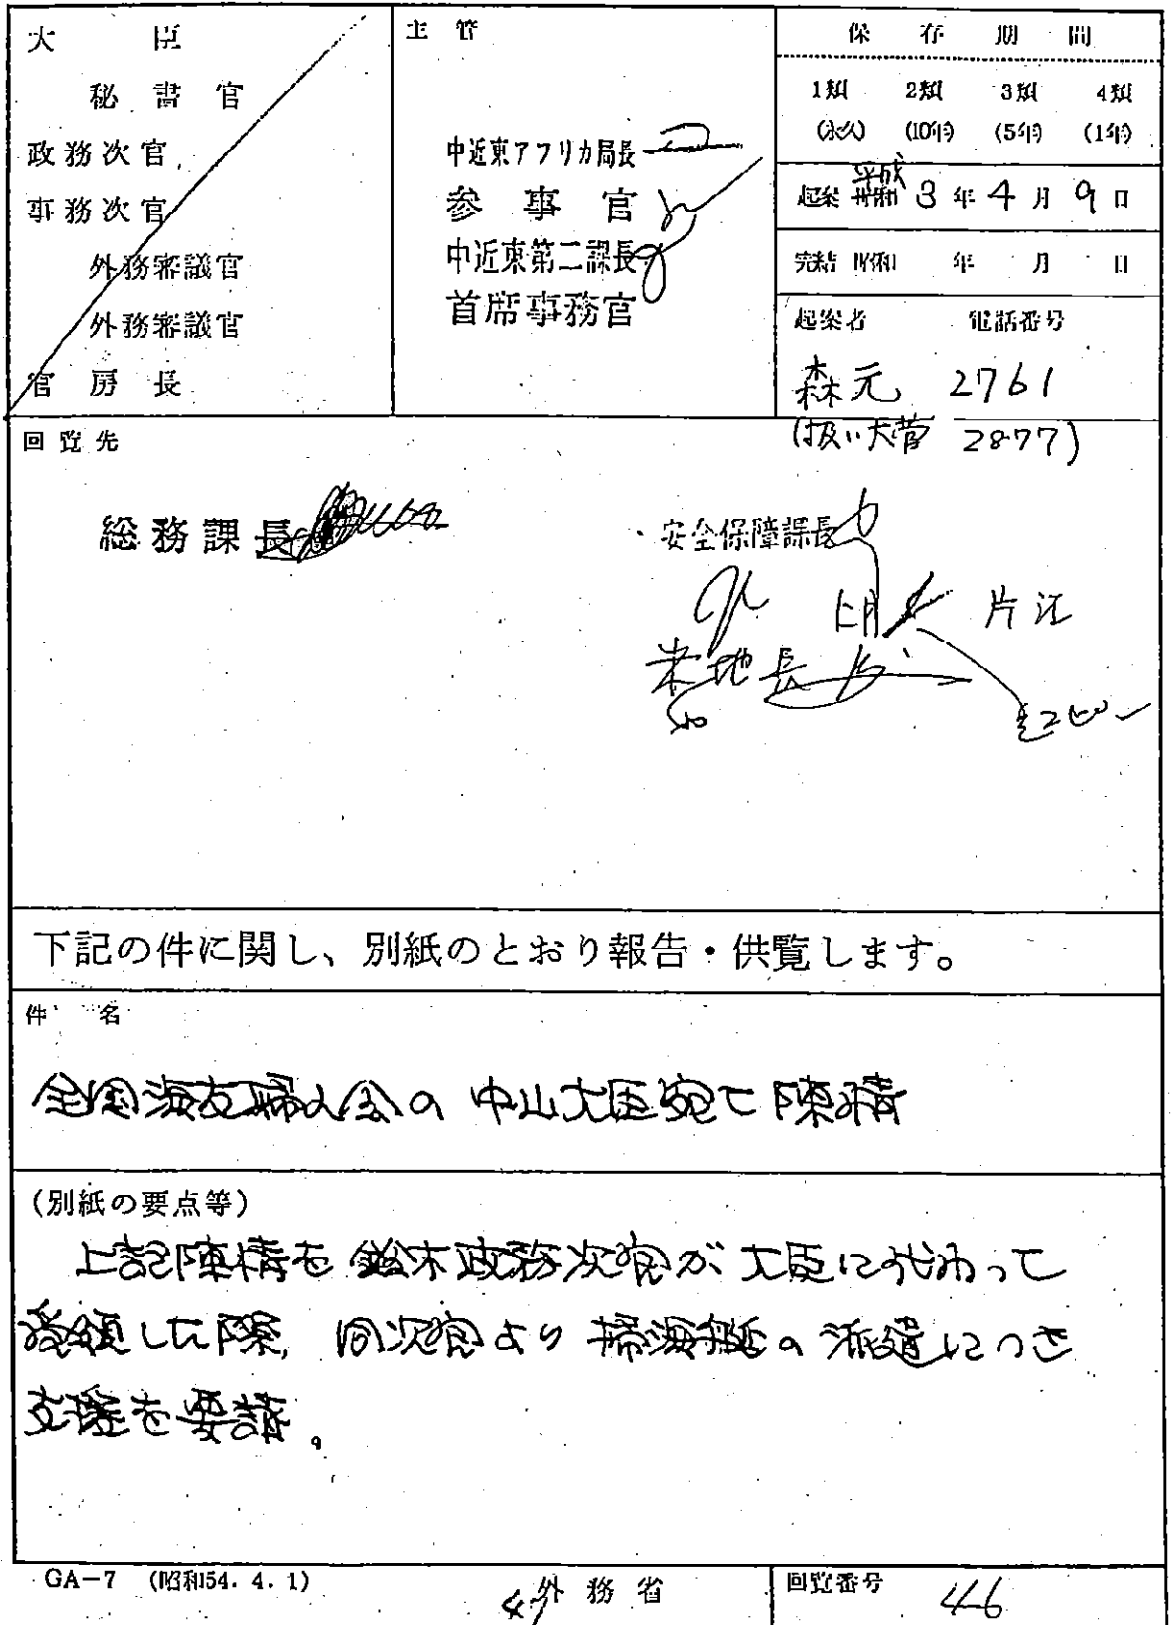 大臣
秘書官
政務次官
事務次官
外務審議官
外務審議官
官房長
主管
中近東アフリカ局長
参事官
中近東第二課長
首席事務官
保存期間
1類 2類 3類 4類
(永久) (10年) (5年) (1年)
起案 昭和 平成 3年 4月 9日
完結 昭和 年 月 日
起案者 電話番号
森元 2761
(扱い大菅 2877)
回覧先
総務課長
安全保障課長
片江
米地長
下記の件に関し、別紙のとおり報告・供覧します。
件名
全国海友婦人会の中山大臣宛て陳情
(別紙の要点等)
上記陳情を鈴木政務次官が大臣に代わって
受領した際、同次官より掃海艇の派遣につき
支援を要請。
GA-7 (昭和54.4.1)
外務省
回覧番号 46